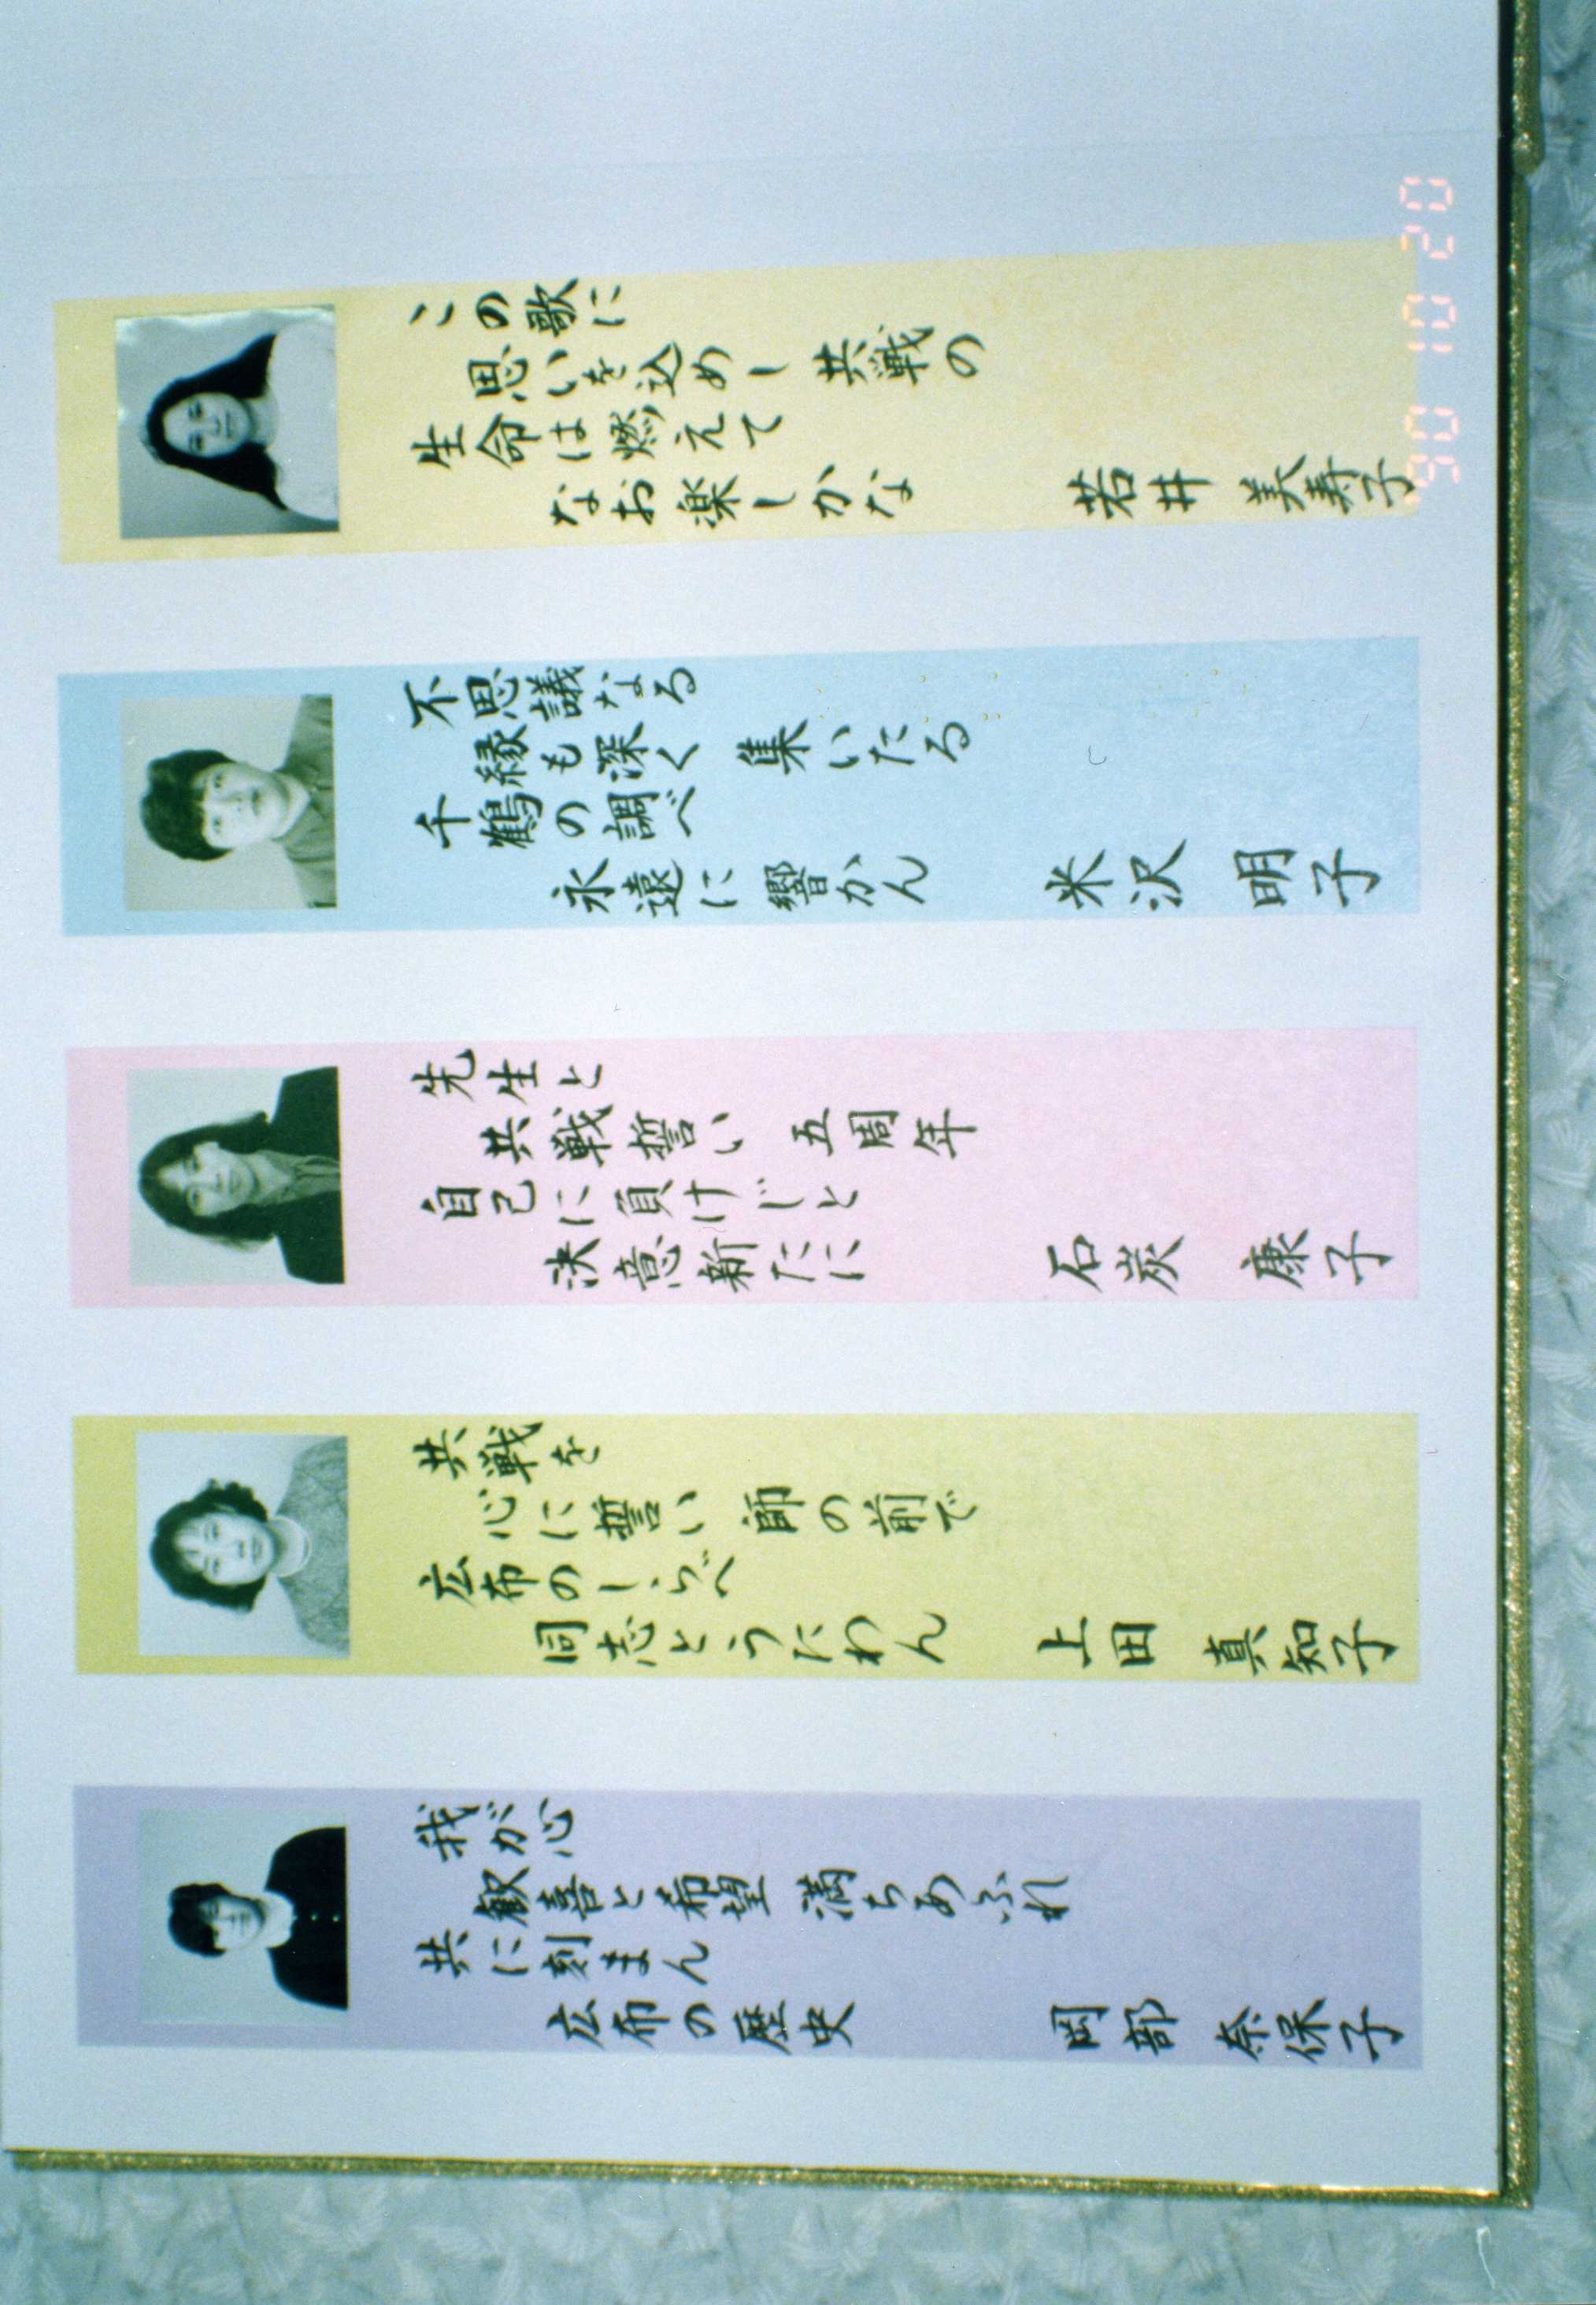 この歌に
思いを込めし 共戦の
生命は燃えて
なお楽しかな
若井 美寿子
不思議なる
縁も深く 集いたる
千鶴の調べ
永遠に響かん
米沢 明子
先生と
共戦誓い 五周年
自己に負けじと
決意新たに
石炭 康子
共戦を
心に誓い 師の前で
広布のしらべ
同志とうたわん
上田 真知子
我が心
歓喜と希望 満ちあふれ
共に刻まん
広布の歴史
岡部 奈保子
'90 10 20